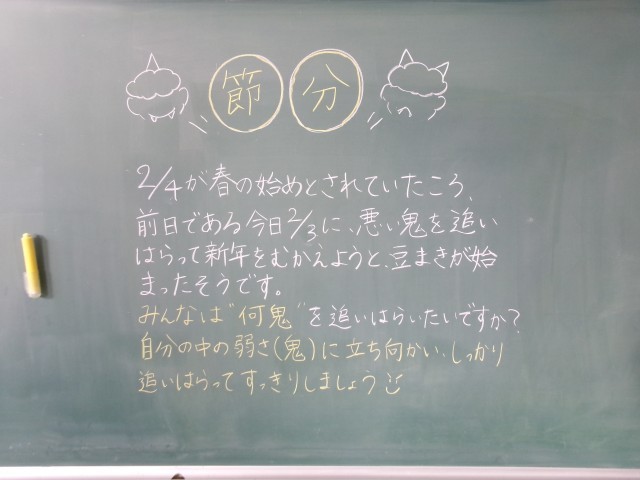 節分
2/4が春の始めとされていたころ、
前日である今日2/3に、悪い鬼を追い
はらって新年をむかえようと、豆まきが始
まったそうです。
みんなは"何鬼"を追いはらいたいですか?
自分の中の弱さ(鬼)に立ち向かい、しっかり
追いはらってすっきりしましょう